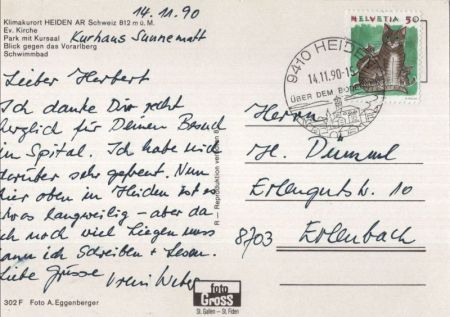 14.11.90
Klimakurort HEIDEN AR Schweiz 812 m ü. M.
Ev. Kirche
Park mit Kursaal
Blick gegen das Vorarlberg
Schwimmbad
Kurhaus Sunnematt
Lieber Herbert
Ich danke Dir recht
herzlich für Deinen Besuch
im Spital. Ich habe mich
darüber sehr gefreut. Nun
hier oben in Heiden ist es
etwas langweilig – aber da
ich noch viel liegen muss
kann ich Schreiben + Lesen.
Liebe Grüsse
Vreni Weber
302 F Foto A. Eggenberger
R — Reproduktion verboten
foto
GROSS
St. Gallen – St. Fiden
HELVETIA 50
9410 HEIDEN
14.11.90-15
ÜBER DEM
Herrn
H. Dümml
Erlengutstr. 10
8703 Erlenbach